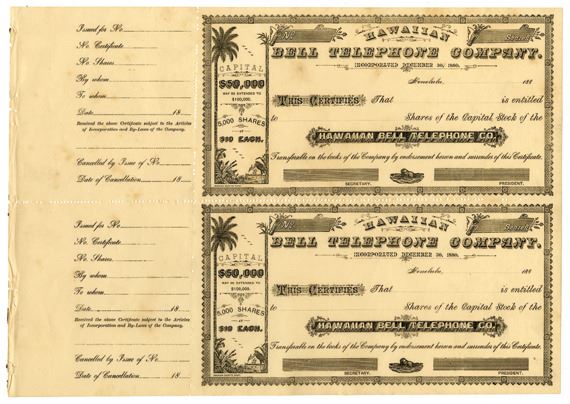 Issued for No.
No. Certificate
No. Shares
By whom
To whom
Date 18
Received the above Certificate subject to the Articles
of Incorporation and By-Laws of the Company.
Cancelled by Issue of No.
Date of Cancellation 18
No. HAWAIIAN Shares
BELL TELEPHONE COMPANY.
INCORPORATED DECEMBER 30, 1880.
Honolulu, 188
CAPITAL
$50,000
MAY BE EXTENDED TO
$100,000.
5,000 SHARES
AT
$10 EACH.
THIS CERTIFIES That is entitled
to Shares of the Capital Stock of the
HAWAIIAN BELL TELEPHONE CO.
Transferable on the books of the Company by endorsement hereon and surrender of this Certificate.
SECRETARY. PRESIDENT.
Issued for No.
No. Certificate
No. Shares
By whom
To whom
Date 18
Received the above Certificate subject to the Articles
of Incorporation and By-Laws of the Company.
Cancelled by Issue of No.
Date of Cancellation 18
No. HAWAIIAN Shares
BELL TELEPHONE COMPANY.
INCORPORATED DECEMBER 30, 1880.
Honolulu, 188
CAPITAL
$50,000
MAY BE EXTENDED TO
$100,000.
5,000 SHARES
AT
$10 EACH.
THIS CERTIFIES That is entitled
to Shares of the Capital Stock of the
HAWAIIAN BELL TELEPHONE CO.
Transferable on the books of the Company by endorsement hereon and surrender of this Certificate.
SECRETARY. PRESIDENT.